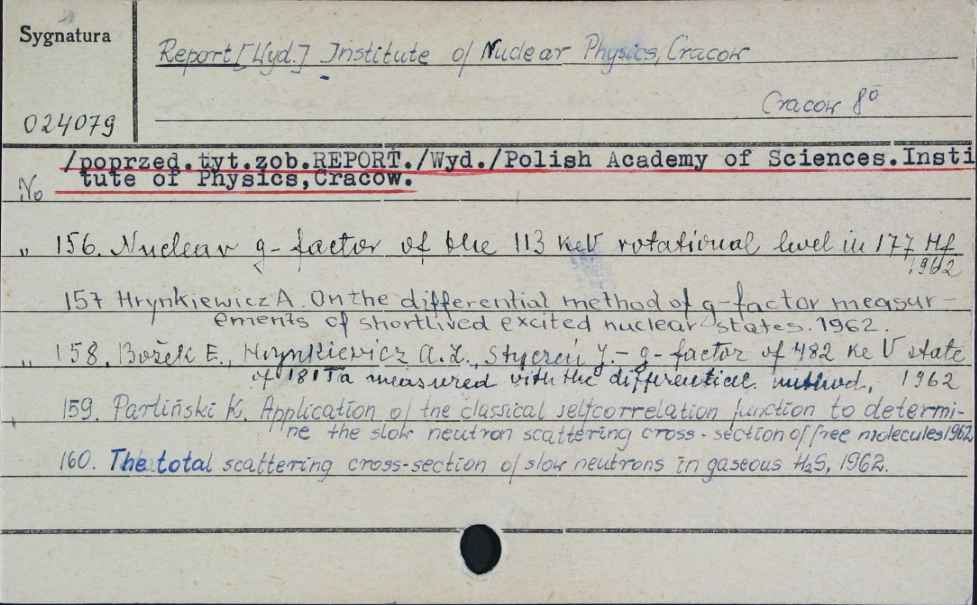 Sygnatura
Report [Wyd.] Institute of Nuclear Physics, Cracow
Cracow 8º
024079
/poprzed.tyt.zob.REPORT./Wyd./Polish Academy of Sciences.Insti
tute of Physics,Cracow.
No
" 156. Nuclear g-factor of the 113 keV rotational level in 177 Hf
1962
157 Hrynkiewicz A. On the differential method of g-factor measur-
ements of shortlived excited nuclear states. 1962.
" 158. Bożek E., Hrynkiewicz A.Z., Styczeń J. - g-factor of 482 keV state
of 181Ta measured with the differential method, 1962
159. Parliński K. Application of the classical selfcorrelation function to determi-
ne the slow neutron scattering cross-section of free molecules 1962
160. The total scattering cross-section of slow neutrons in gaseous H2S, 1962.